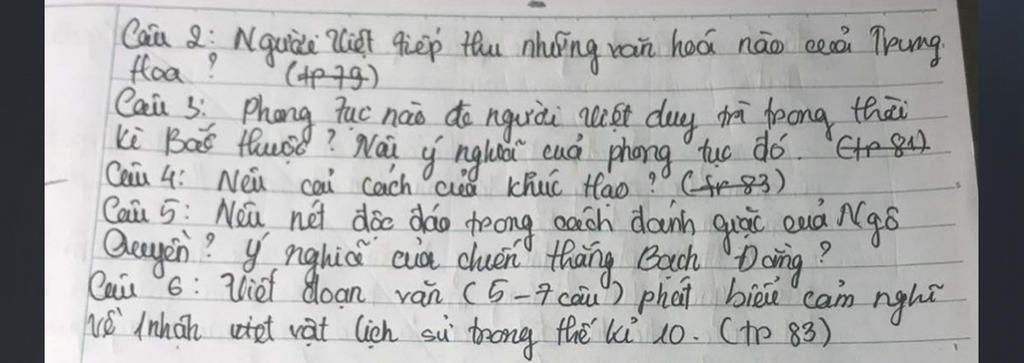 Câu 2: Người Việt tiếp thu những văn hoá nào của Trung
Hoa? (tr 79)
Câu 3: Phong tục nào đc người việt duy trì trong thời
kì Bắc thuộc? Nói ý nghĩa của phong tục đó. (tr 81)
Câu 4: Nêu cải cách của khúc Hạo? (tr 83)
Câu 5: Nêu nét độc đáo trong cách đánh giặc của Ngô
Quyền? Ý nghĩa của chiến thắng Bạch Đằng?
Câu 6: Viết đoạn văn (5-7 câu) phát biểu cảm nghĩ
về 1 nhân vật lịch sử trong thế kỉ 10. (tr 83)